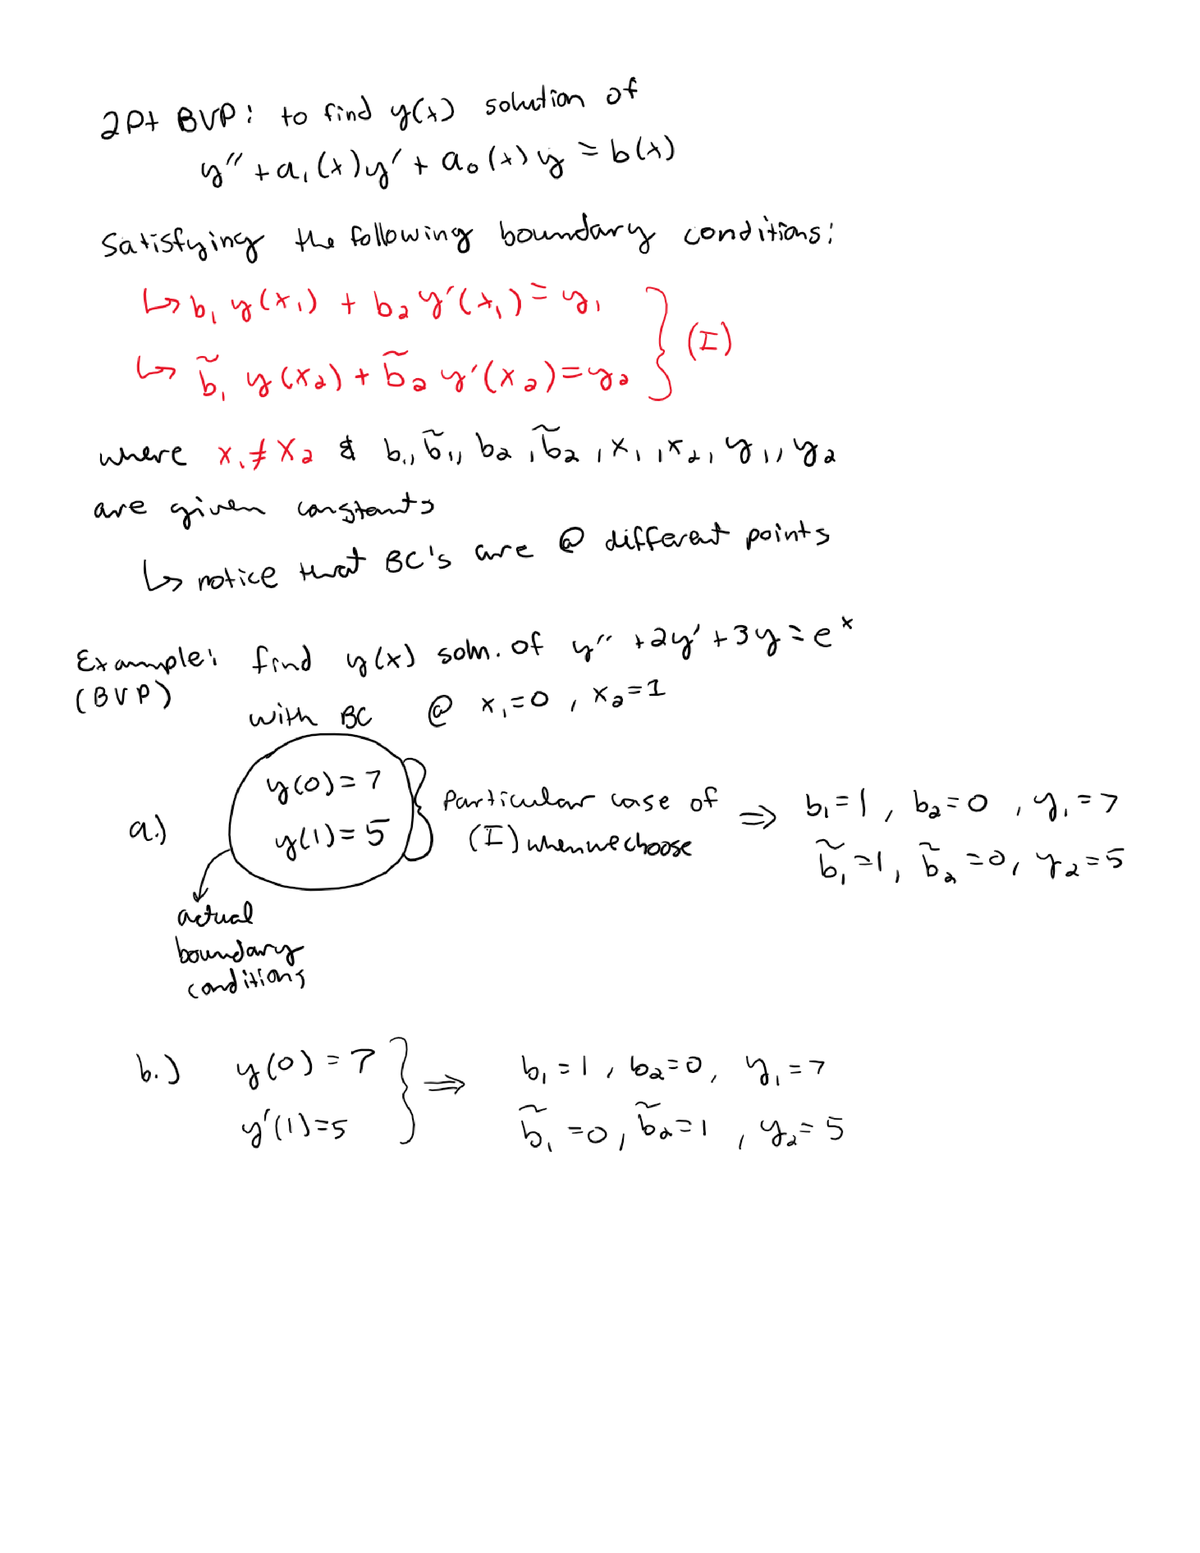 2Pt BVP: to find y(x) solution of
y'' + a₁(x)y' + a₀(x)y = b(x)
Satisfying the following boundary conditions:
↳ b₁ y(x₁) + b₂ y'(x₁) = y₁
↳ b̃₁ y(x₂) + b̃₂ y'(x₂) = y₂ } (I)
where x₁ ≠ x₂ & b₁, b̃₁, b₂, b̃₂, x₁, x₂, y₁, y₂
are given constants
↳ notice that BC's are @ different points
Example: find y(x) soln. of y'' + 2y' + 3y = eˣ
(BVP) with BC @ x₁=0, x₂=1
a.) y(0) = 7
y(1) = 5
} Particular case of
(I) when we choose
⇒ b₁=1, b₂=0, y₁=7
b̃₁=1, b̃₂=0, y₂=5
actual
boundary
conditions
b.) y(0) = 7 } ⇒ b₁=1, b₂=0, y₁=7
y'(1)=5 b̃₁=0, b̃₂=1, y₂=5